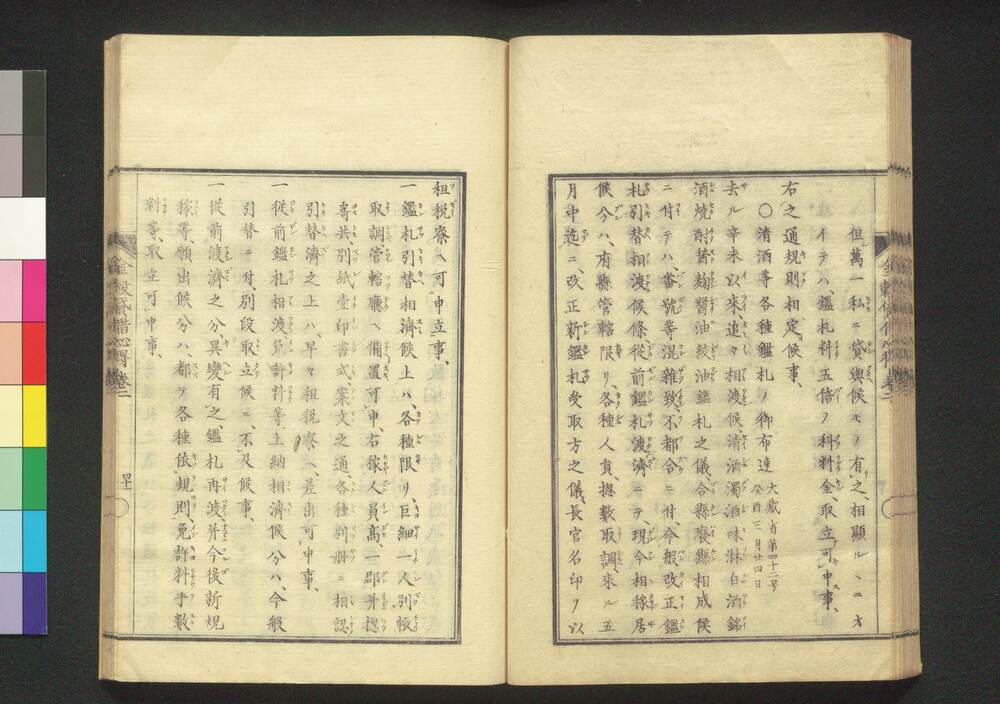 但萬一私ニ貸與候モノ有之、相顯ル丶ニオ
イテハ、鑑札料五倍ノ科料金、取立可申事、
右之通規則相定候事、
〇清酒等各種鑑札ノ御布達 大蔵省第四十二号 癸酉三月廿四日
去ル辛未以來追々相渡候清酒濁酒味淋白酒銘
酒焼酎醤麹醤油絞油鑑札之儀、合縣廢縣相成候
ニ付テハ、番號等混雜致、不都合ニ付、今般改正鑑
札引替相渡候條從前鑑札渡濟ニテ現今相稼居
候分ハ、府縣管轄限リ、各種人員、惣數取調、來ル五
月中迄ニ、改正新鑑札受取方之儀、長官名印ヲ以
租税寮ヘ可申立事、
一鑑札引替相濟候上ハ、各種限リ、巨細一人別帳
取調管轄廳ヘ備置可申、右稼人員高、一郡并惣
寄共、別紙壹印書式案文之通各種別册ニ相認
引替濟之上ハ、早々租税寮ヘ、差出可申事、
一從前鑑札相渡、免許料等上納相濟候分ハ、今般
引替ニ付、別段取立候ニ、不及候事、
一從前渡濟之分異變有之、鑑札再渡并今後新規
稼等願出候分ハ、都テ各種依規則、免許料手數
料等、取立可申事、
金穀貸借心得 卷二
四十